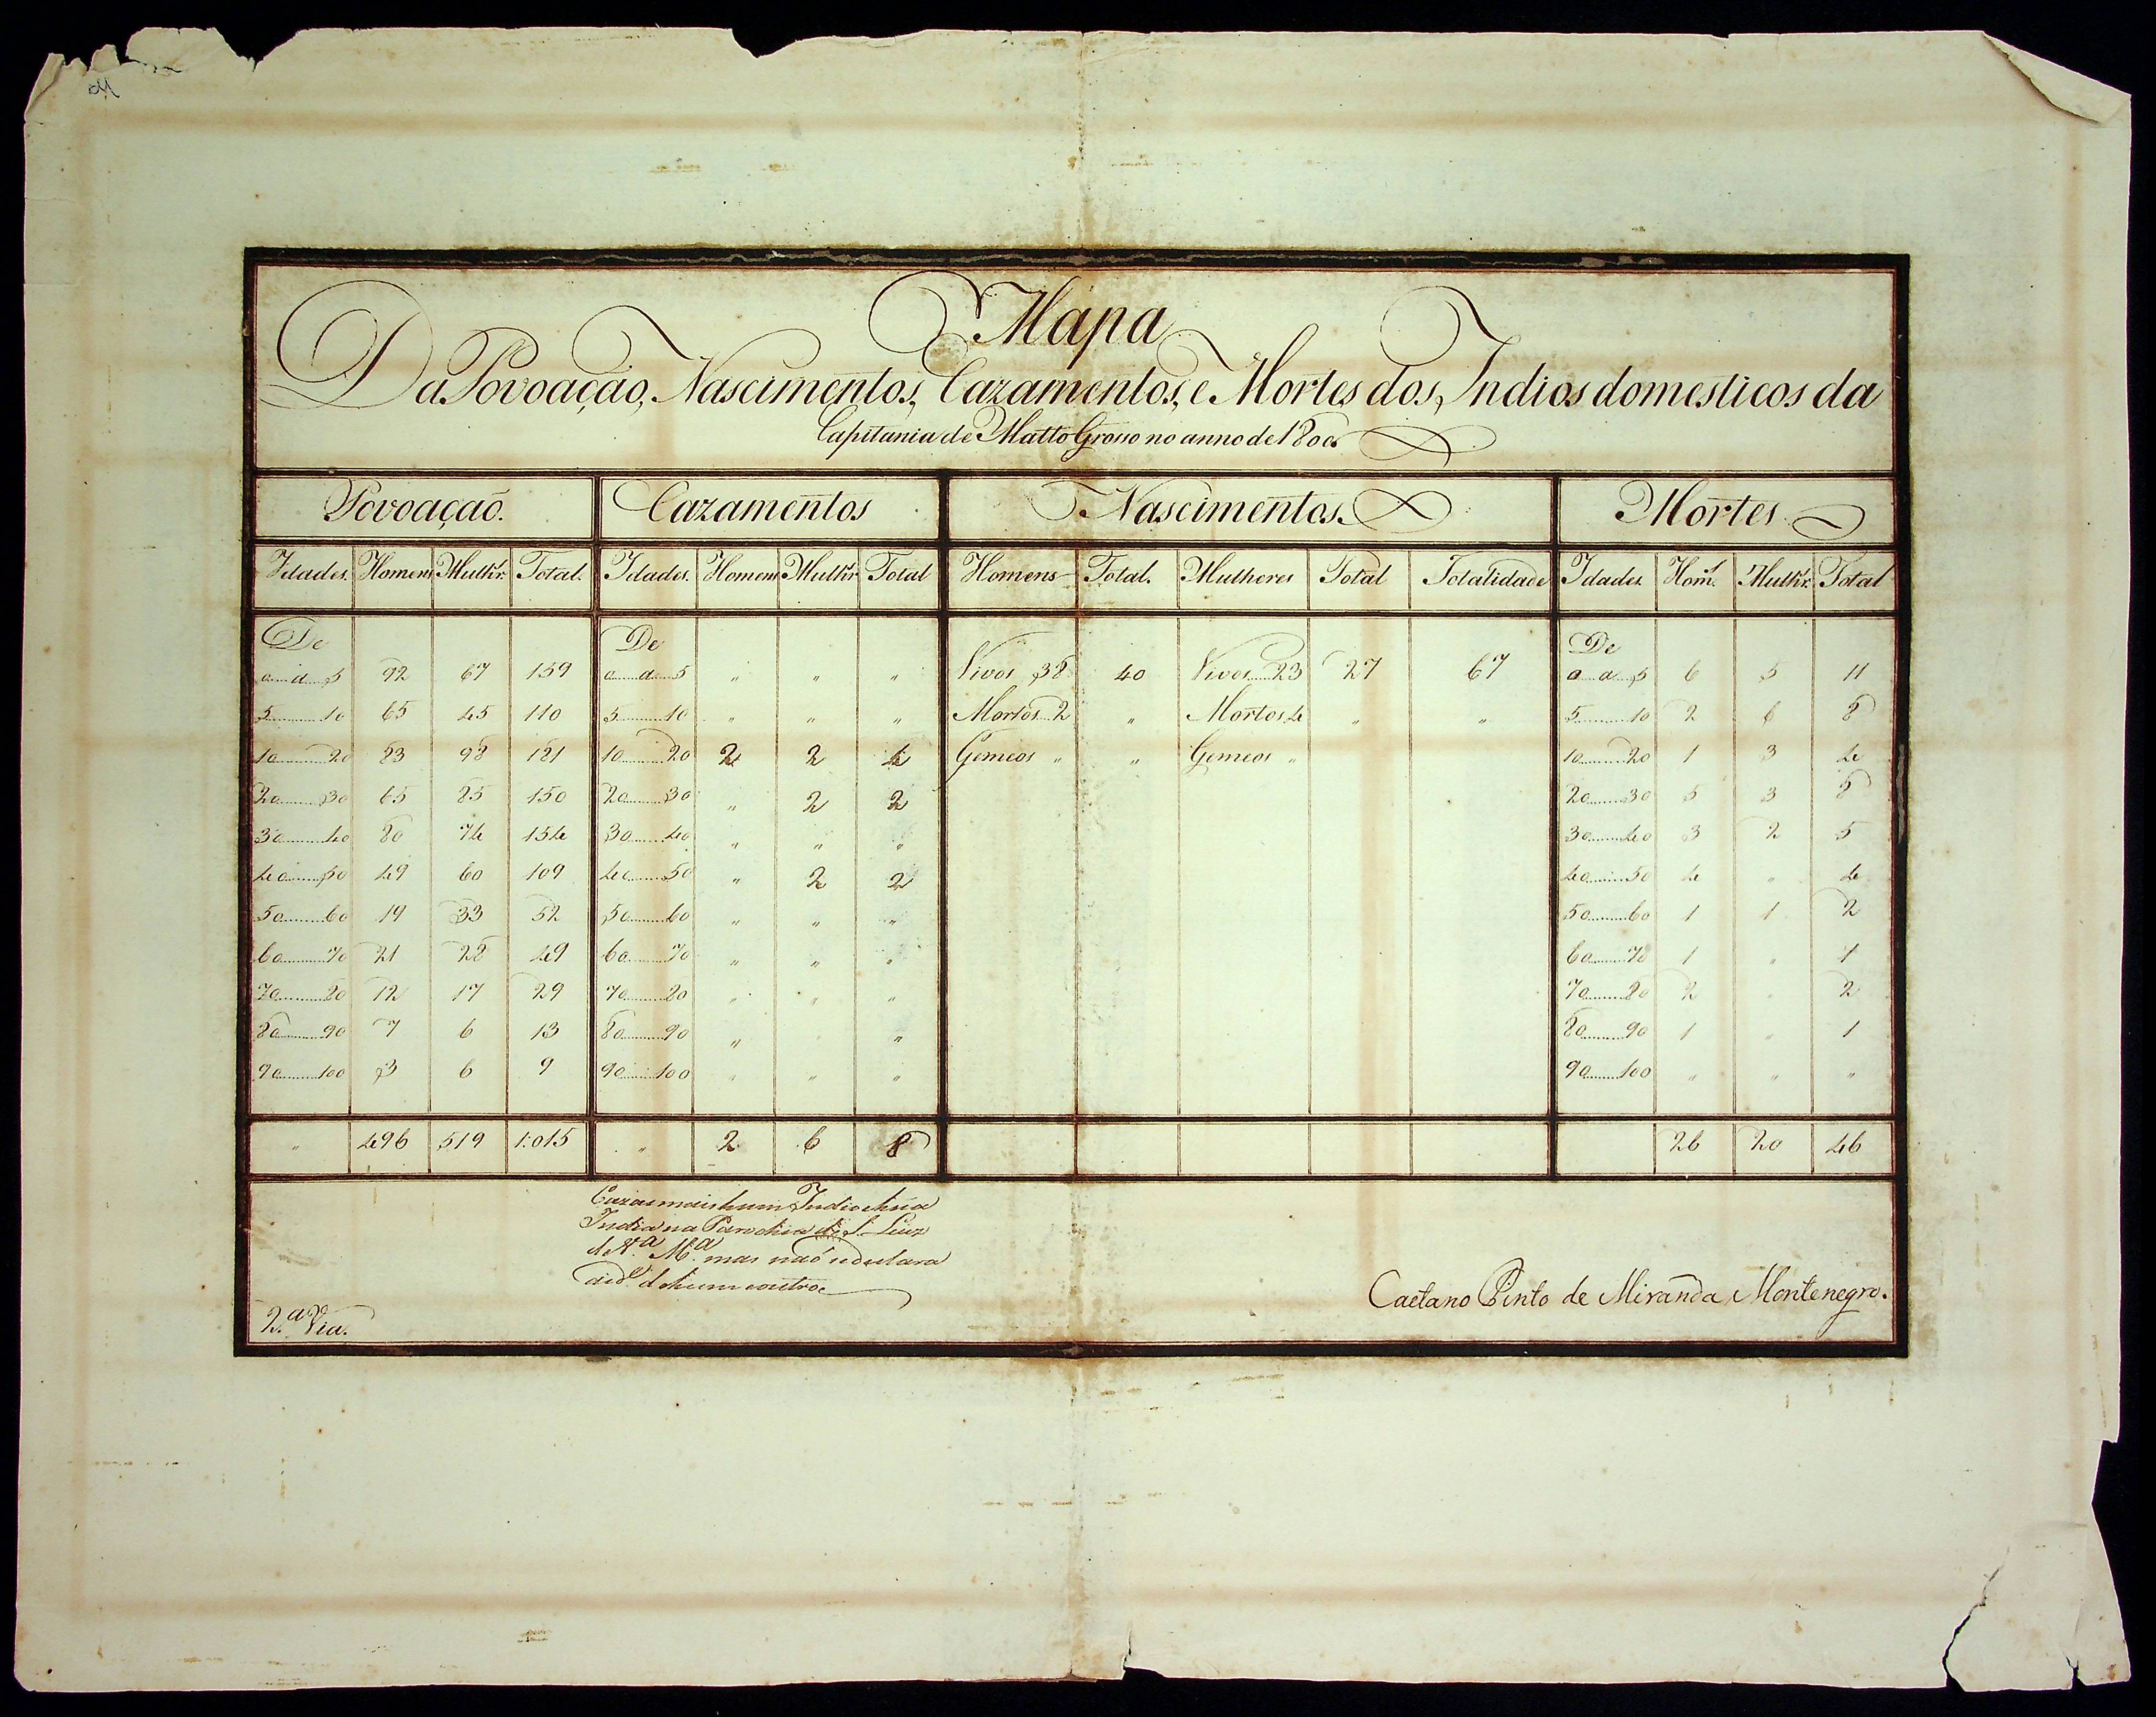 Mapa
Da Povoação, Nascimentos, Cazamentos, e Mortes dos Indios domesticos da
Capitania de Matto Grosso no anno de 1800
Povoação. Cazamentos Nascimentos. Mortes
Idades. Homens Mulhr. Total. Idades. Homens Mulhr. Total Homens Total. Mulheres Total Totalidade Idades Hom. Mulhr. Total
De De De
0 a 5 92 67 159 0 a 5 " " " Vivos 38 40 Vivos 23 27 67 0 a 5 6 5 11
5 10 65 45 110 5 10 " " " Mortos 2 " Mortos 4 " " 5 10 2 6 8
10 20 83 98 181 10 20 2 2 4 Gemeos " " Gemeos " 10 20 1 3 4
20 30 65 85 150 20 30 " 2 2 20 30 5 3 8
30 40 80 74 154 30 40 " " " 30 40 3 2 5
40 50 49 60 109 40 50 " 2 2 40 50 4 " 4
50 60 19 33 52 50 60 " " " 50 60 1 1 2
60 70 21 28 49 60 70 " " " 60 70 1 " 1
70 80 12 17 29 70 80 " " " 70 80 2 " 2
80 90 7 6 13 80 90 " " " 80 90 1 " 1
90 100 3 6 9 90 100 " " " 90 100 " " "
" 496 519 1:015 " 2 6 8 26 20 46
Cazao mais hum Indio e hũa
India na Parochia de S. Luiz
de Va. Ma. mas naõ se declara
a id.e de hum e outro
Caetano Pinto de Miranda Montenegro.
2.a Via.